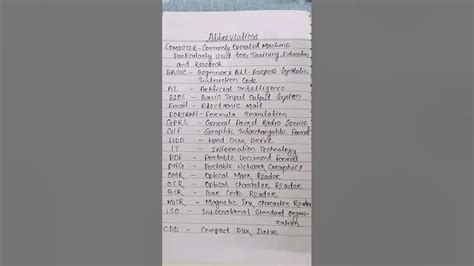 Abbreviations
COMPUTER - Commonly Operated Machine
Particularly Used for Training, Education
and Research
BASIC - Beginner's All Purpose Symbolic
Instruction Code
AI - Artificial Intelligence
BIOS - Basic Input Output System
Email - Electronic Mail
FORTRAN - Formula Translation
GPRS - General Packet Radio Service
GIF - Graphic Interchangable Format
HDD - Hard Disk Drive
IT - Information Technology
PDF - Portable Document Format
PNG - Portable Network Graphics
OMR - Optical Mark Reader
OCR - Optical character Reader
BCR - Bar Code Reader
MICR - Magnetic Ink character Reader
ISO - International Standard Organi-
zation
CDD - Compact Disk Drive